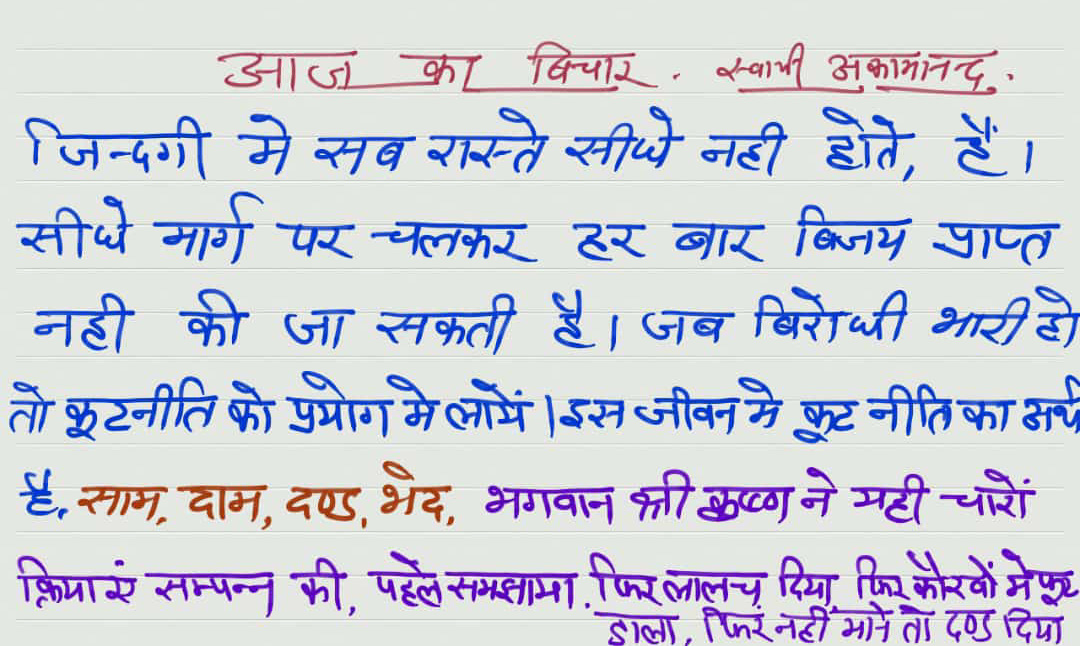 आज का बिचार. स्वामी अकामानन्द.
जिन्दगी मे सब रास्ते सीधे नही होते, हैं।
सीधे मार्ग पर चलकर हर बार बिजय प्राप्त
नही की जा सकती है। जब बिरोधी भारी हो
तो कूटनीति को प्रयोग मे लायें। इस जीवन मे कूट नीति का अर्थ
है, साम, दाम, दण्ड, भेद, भगवान श्री कृष्ण ने यही चारों
क्रियाएं सम्पन्न की, पहले समझाया. फिर लालच दिया, फिर कौरवों मे फूट
डाला, फिर नहीं माने तो दण्ड दिया